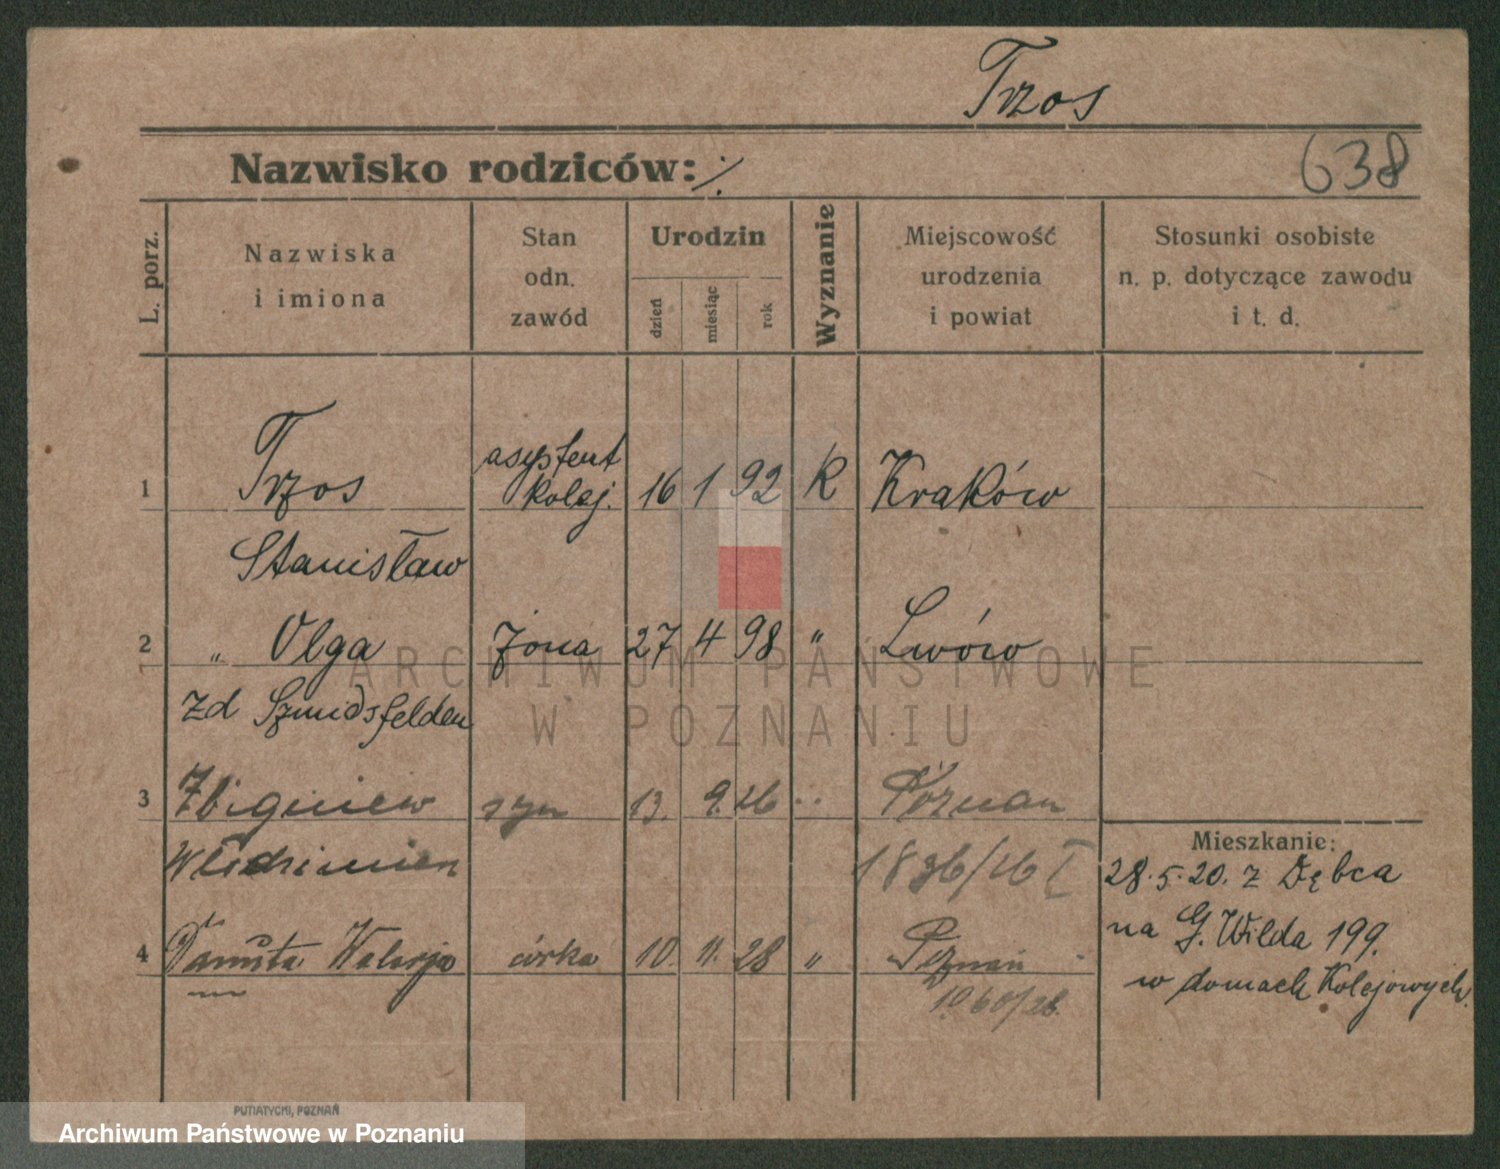 Trzos
Nazwisko rodziców: ·/.
638
L. porz.
Nazwiska
i imiona
Stan
odn.
zawód
Urodzin
dzień
miesiąc
rok
Wyznanie
Miejscowość
urodzenia
i powiat
Stosunki osobiste
n. p. dotyczące zawodu
i t. d.
1 Trzos asystent kolej. 16 1 92 K Kraków
Stanisław
2 " Olga żona 27 4 98 " Lwów
zd Szmidsfelden
3 Zbigniew syn 13. 9. 26 " Poznań
Włodzimierz 1836/26 I
4 Danuta Walerja córka 10. 11. 28 " Poznań
1060/28.
Mieszkanie:
28.5.20. z Dębca
na G. Wilda 199.
w domach Kolejowych.
ARCHIWUM PAŃSTWOWE
W POZNANIU
PUTIATYCKI, POZNAŃ
Archiwum Państwowe w Poznaniu